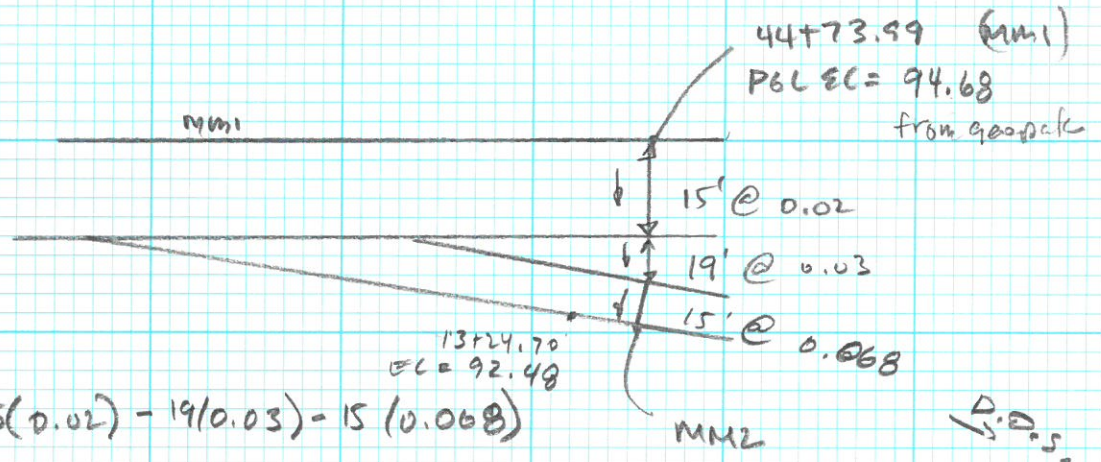 44+73.99 (MM1)
PGL EL = 94.68
from geopak
MM1
15' @ 0.02
19' @ 0.03
15' @ 0.068
13+24.70
EL = 92.48
(0.02) - 19(0.03) - 15 (0.068)
MM2